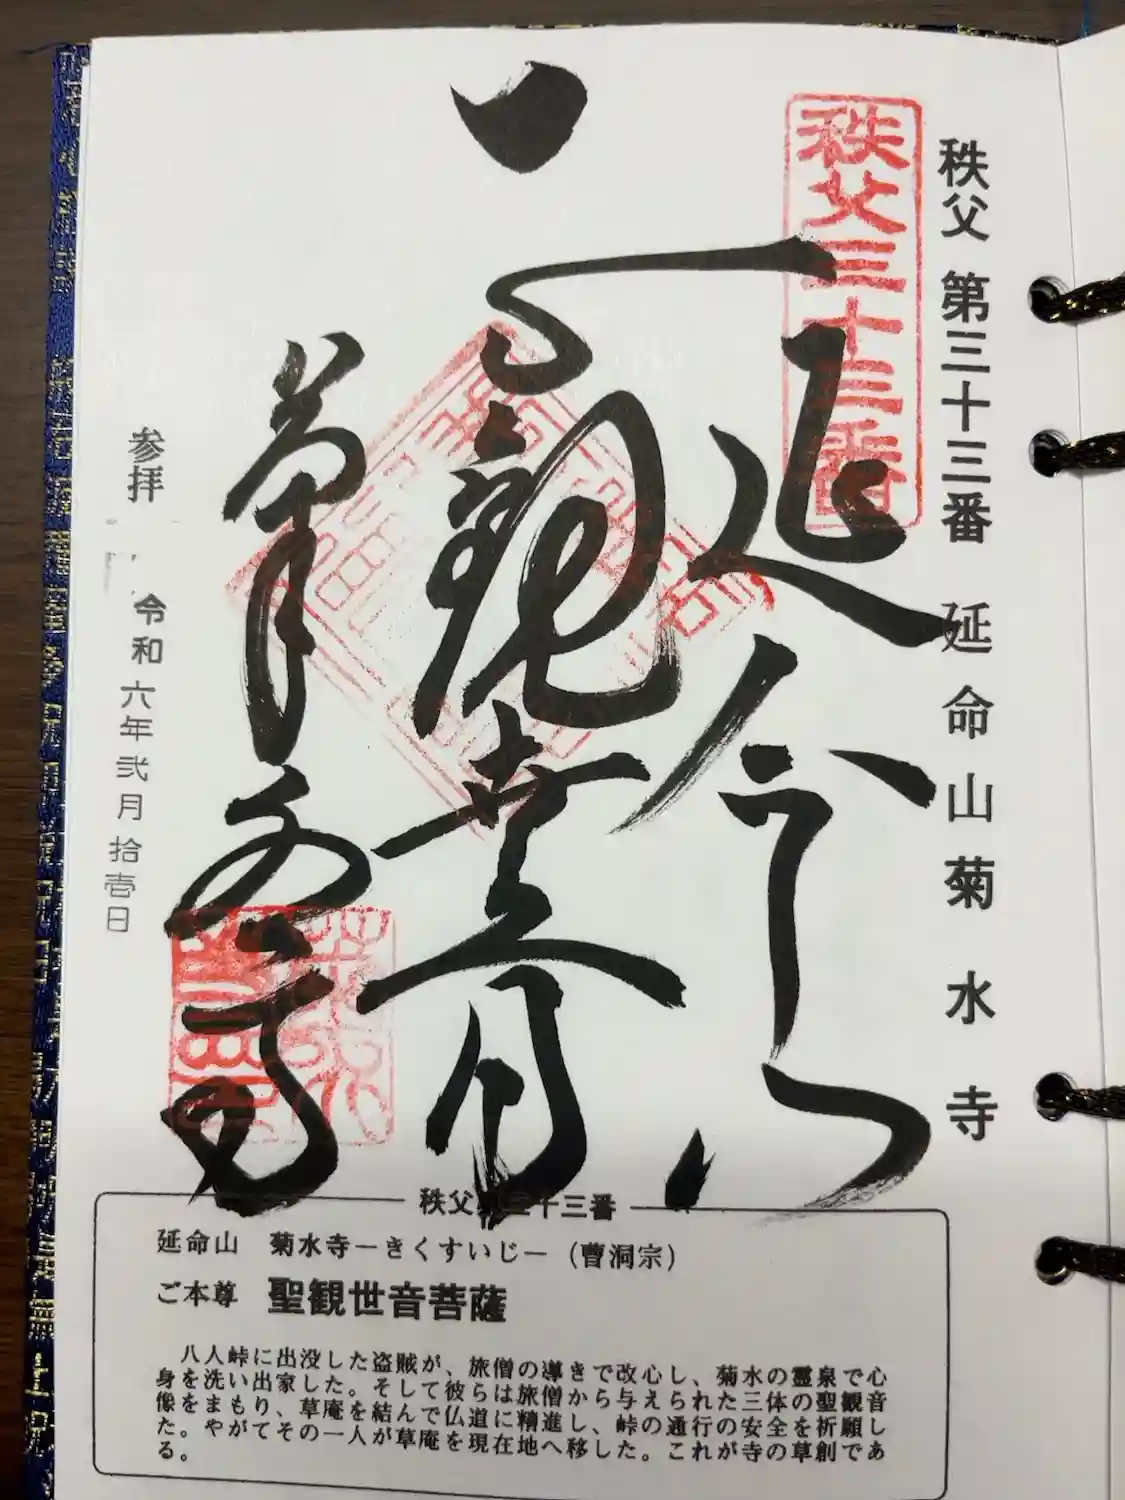 秩父 第三十三番 延命山菊水寺
秩父三十三番
延命山
聖観世音
菊水寺
参拝 令和六年弐月拾壱日
秩父 三十三番
延命山 菊水寺ーきくすいじー（曹洞宗）
ご本尊 聖観世音菩薩
八人峠に出没した盗賊が、旅僧の導きで改心し、菊水の霊泉で心
身を洗い出家した。そして彼らは旅僧から与えられた三体の聖観音
像をまもり、草庵を結んで仏道に精進し、峠の通行の安全を祈願し
た。やがてその一人が草庵を現在地へ移した。これが寺の草創であ
る。